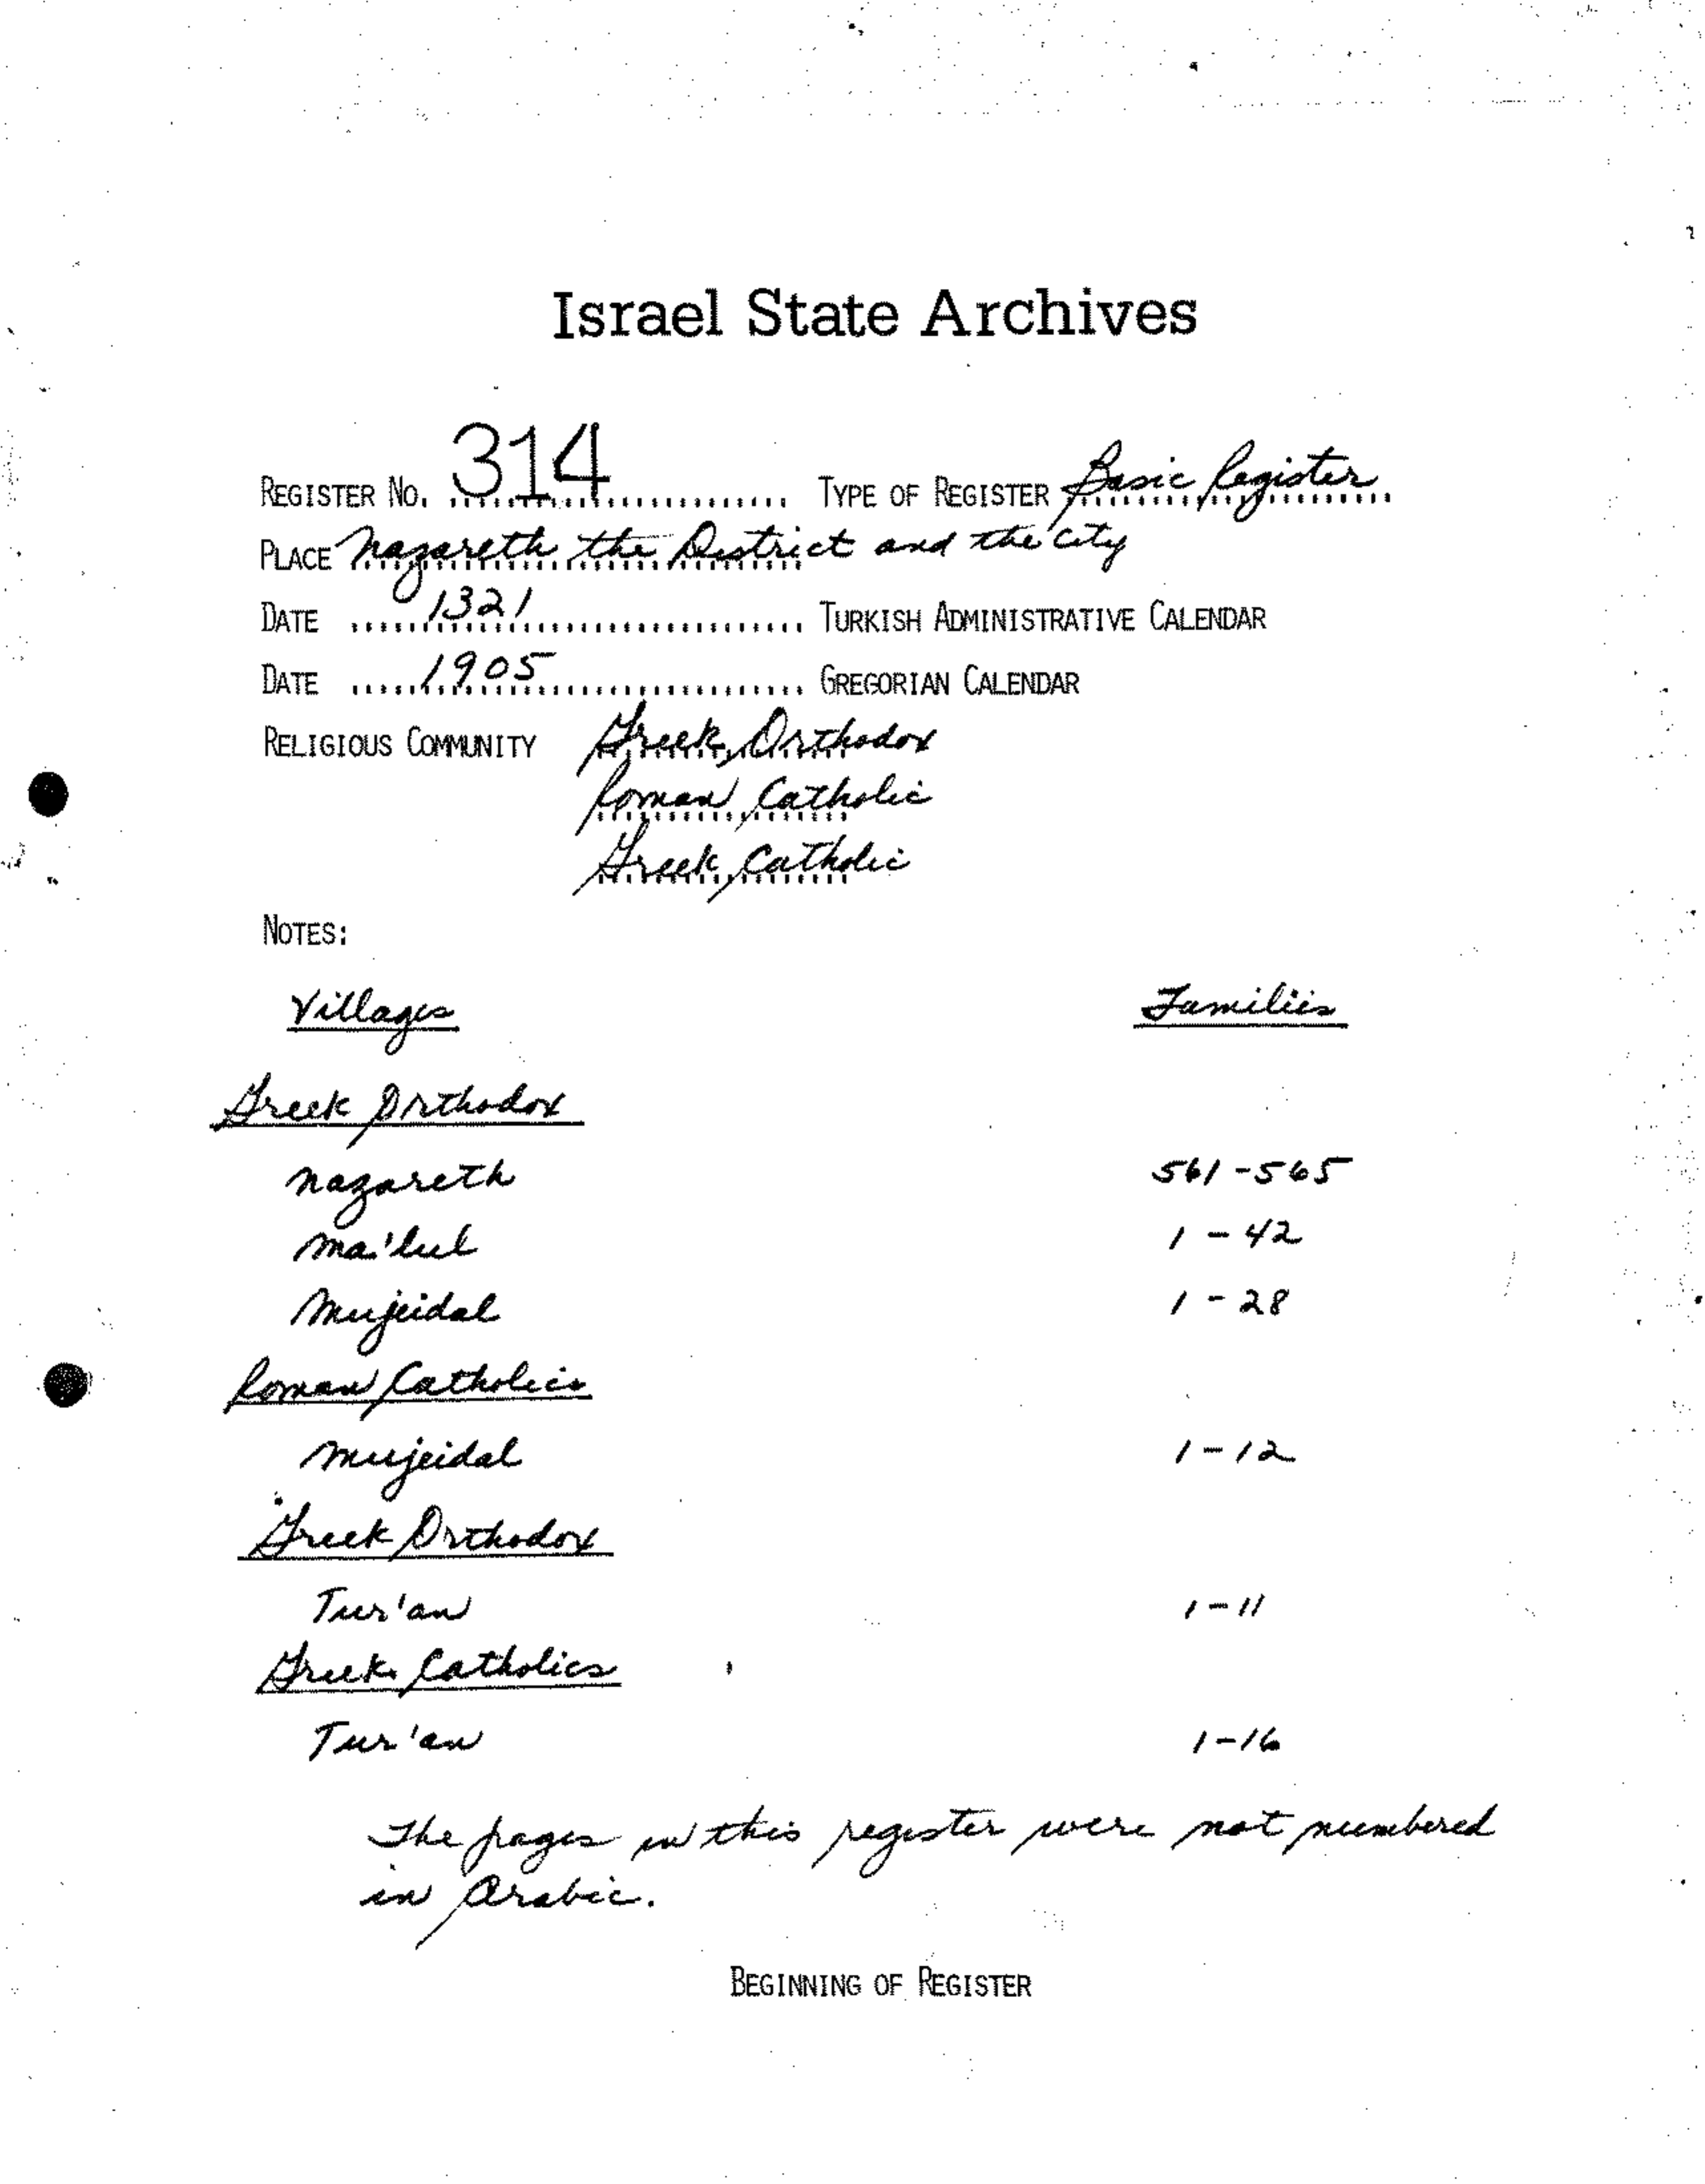 Israel State Archives
REGISTER NO. 314 TYPE OF REGISTER Basic Register
PLACE Nazareth the District and the city
DATE 1321 TURKISH ADMINISTRATIVE CALENDAR
DATE 1905 GREGORIAN CALENDAR
RELIGIOUS COMMUNITY Greek Orthodox
Roman Catholic
Greek Catholic
NOTES:
Villages Families
Greek Orthodox
Nazareth 561-565
Ma'lul 1-42
Mujeidal 1-28
Roman Catholics
Mujeidal 1-12
Greek Orthodox
Tur'an 1-11
Greek Catholics
Tur'an 1-16
The pages in this register were not numbered
in Arabic.
BEGINNING OF REGISTER